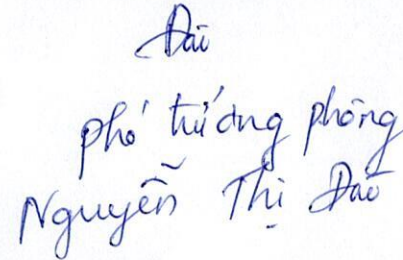 Đài
phó trưởng phòng
Nguyễn Thị Đào